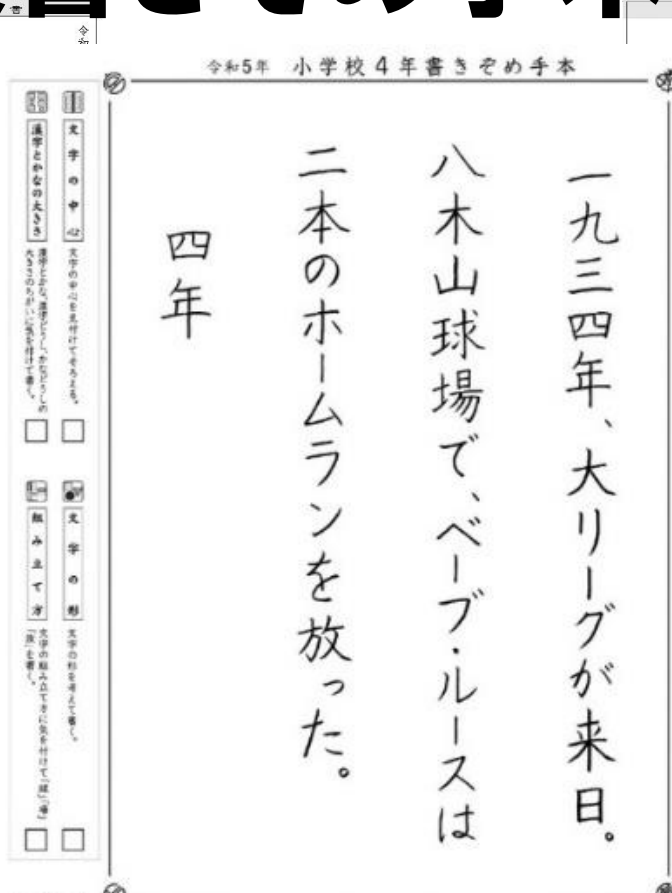 令和5年 小学校4年書きぞめ手本
一九三四年、大リーグが来日。
八木山球場で、ベーブ・ルースは
二本のホームランを放った。
四年
文字の中心
文字の中心を見付けてそろえる。
漢字とかなの大きさ
漢字とかな、漢字どうし、かなどうしの
大きさのちがいに気を付けて書く。
文字の形
文字の形を考えて書く。
組み立て方
文字の組み立て方に気を付けて「球」「場」
「放」を書く。